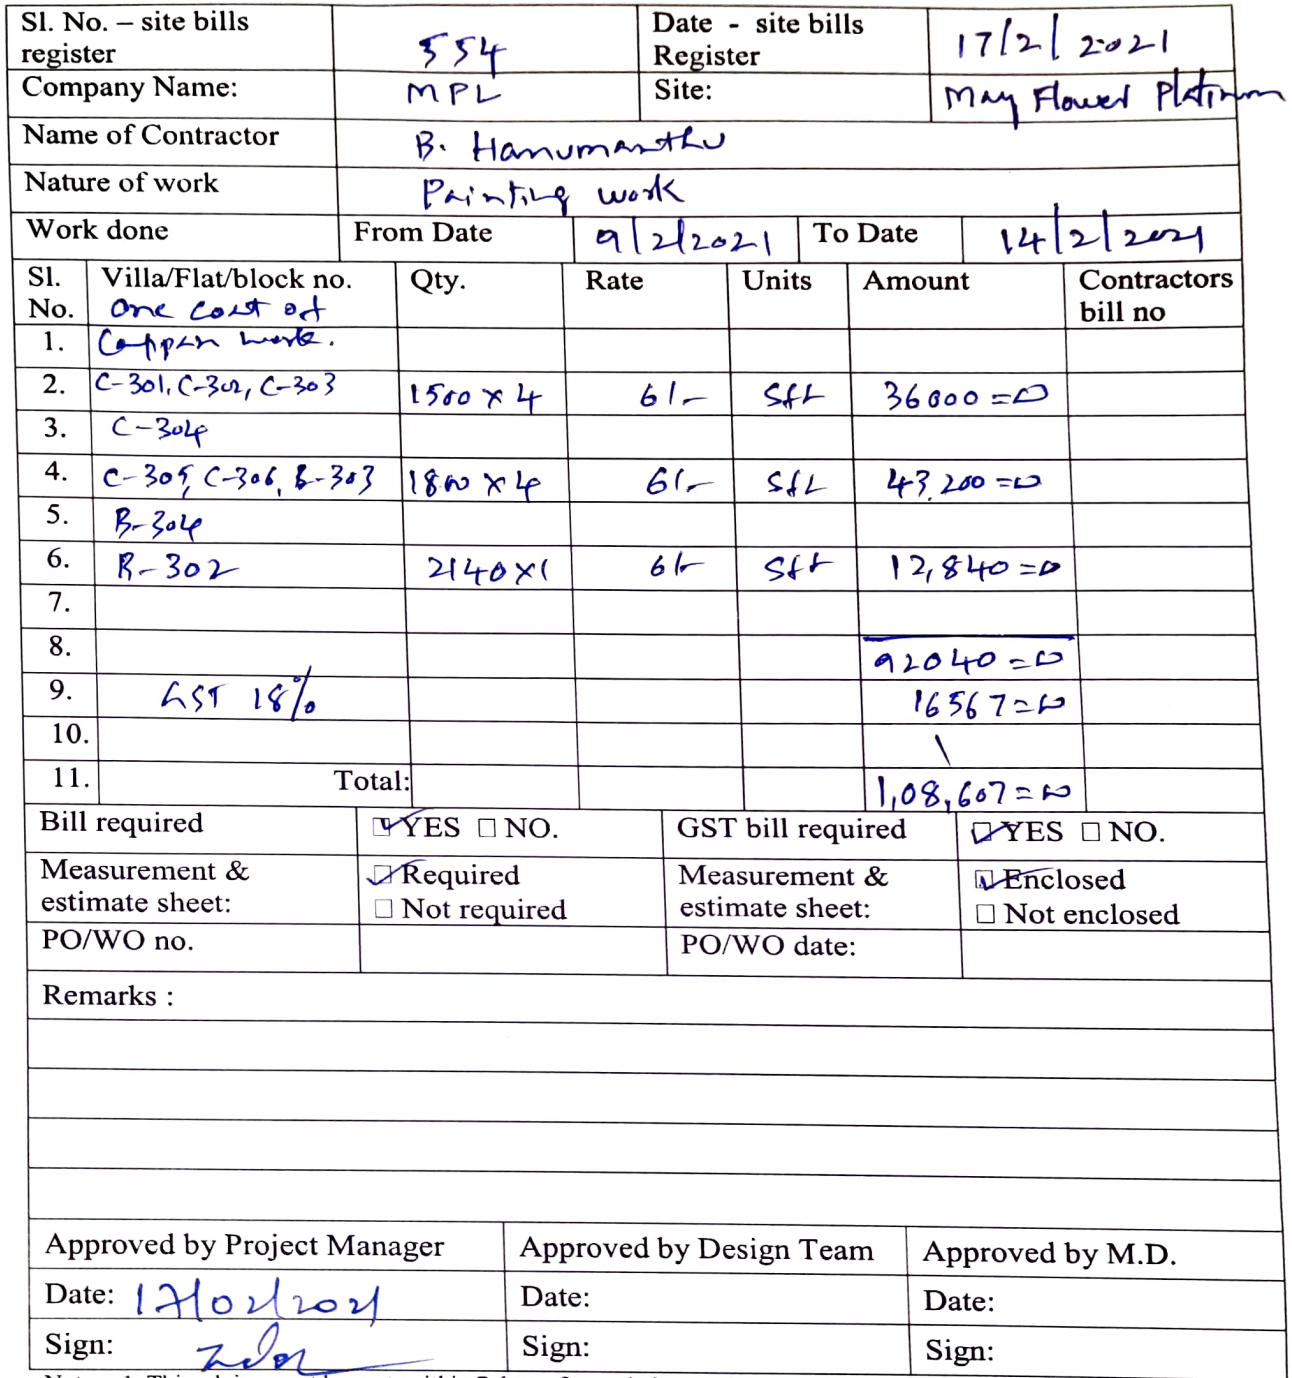 Sl. No. – site bills register 554 Date - site bills Register 17/2/2021
Company Name: MPL Site: May Flower Platinum
Name of Contractor B. Hanumanthu
Nature of work Painting work
Work done From Date 9/2/2021 To Date 14/2/2021
Sl. No. Villa/Flat/block no. Qty. Rate Units Amount Contractors bill no
One coat of
1. work.
2. C-301, C-302, C-303 1500 x 4 6/- Sft 36000=00
3. C-304
4. C-305, C-306, B-303 1800 x 4 6/- Sft 43,200=00
5. B-304
6. B-302 2140x1 6/- Sft 12,840=00
7.
8. 92040=00
9. GST 18% 16567=00
10. \
11. Total: 1,08,607=00
Bill required ☑ YES ☐ NO. GST bill required ☑ YES ☐ NO.
Measurement & estimate sheet: ☑ Required ☐ Not required Measurement & estimate sheet: ☑ Enclosed ☐ Not enclosed
PO/WO no. PO/WO date:
Remarks :
Approved by Project Manager Approved by Design Team Approved by M.D.
Date: 17/02/2021 Date: Date:
Sign: Sign: Sign: